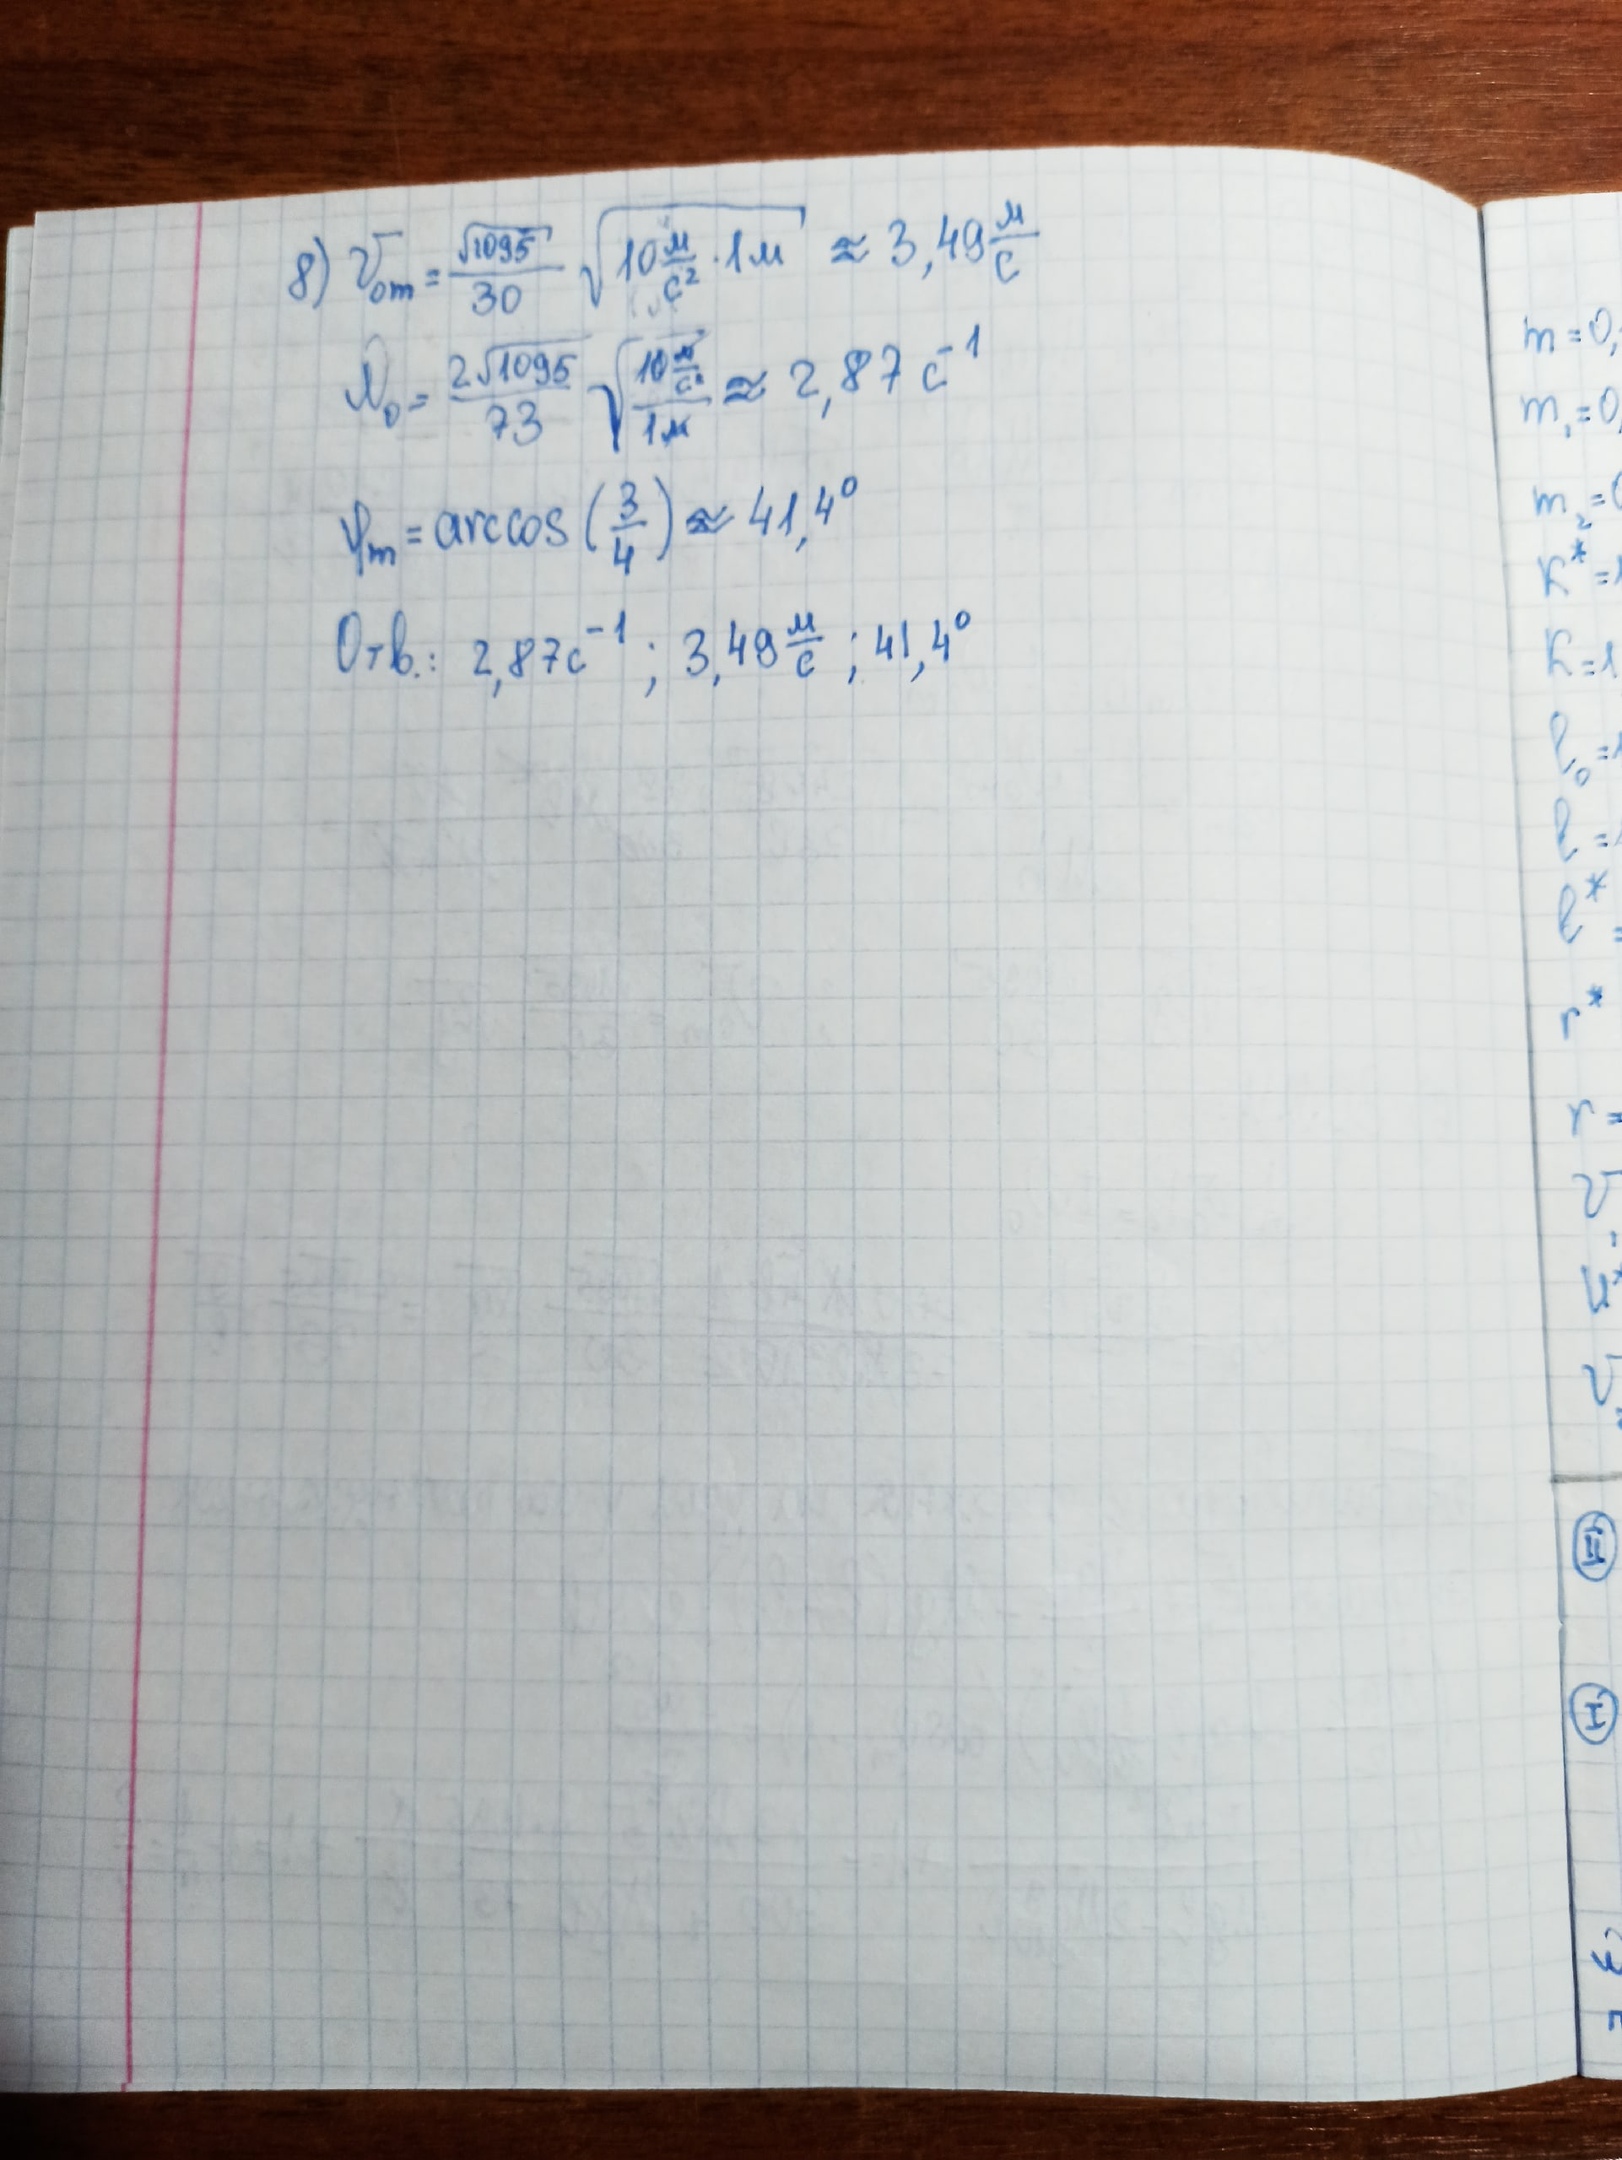 8) V₀ₘ = √1095/30 √(10 м/с² · 1м) ≈ 3,49 м/с
= 2√1095/73 √(10 м/с² / 1м) ≈ 2,87 с⁻¹
φₘ = arccos (3/4) ≈ 41,4⁰
Отв.: 2,87с⁻¹ ; 3,49 м/с ; 41,4⁰
m = 0,
m₁ = 0,
m₂ =
K* =
K = 1
l₀ =
l =
l* =
r*
r =
II
I